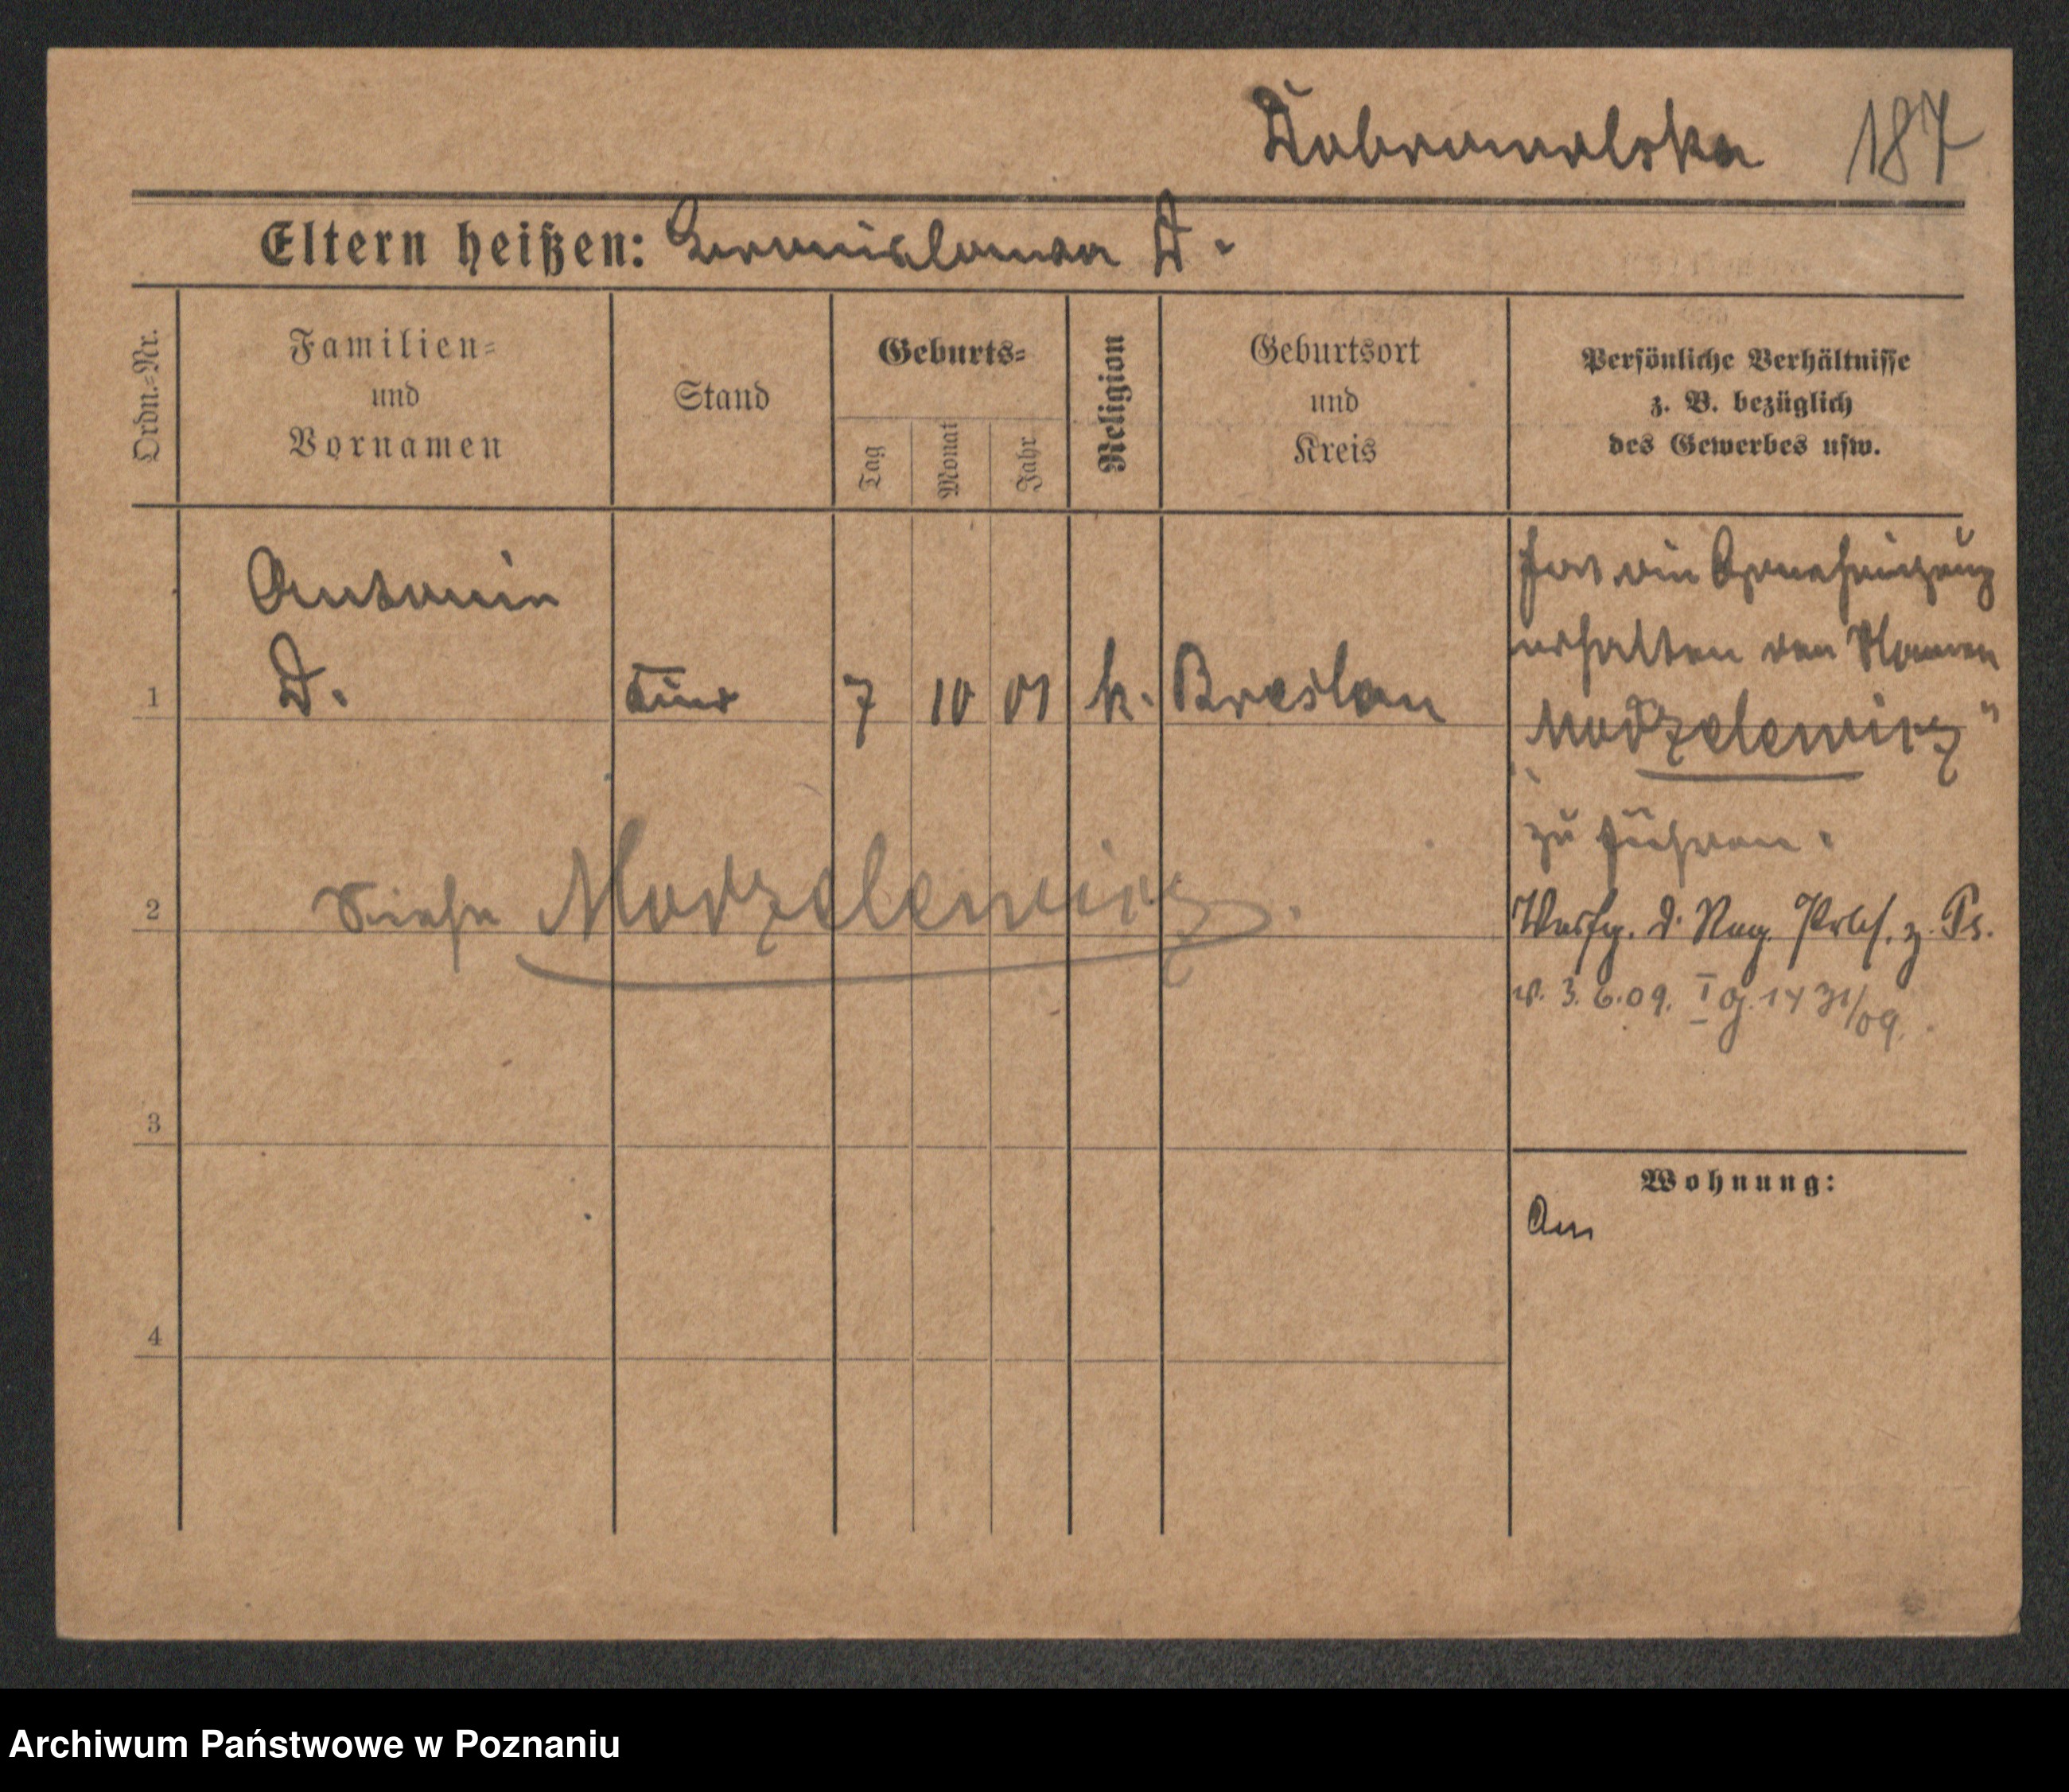 Dobrowolska 187
Eltern heißen: Bronislawa D.
Ordn.=Nr.
Familien=
und
Vornamen
Stand
Geburts=
Tag
Monat
Jahr
Religion
Geburtsort
und
Kreis
Persönliche Verhältnisse
z. B. bezüglich
des Gewerbes usw.
Antonin
1 D. Kind 7 10 01 k. Breslau
hat die Genehmigung
erhalten den Namen
Modzelewicz"
zu führen.
2 Siehe Modzelewicz.
Verfg. d. Reg. z. Ps.
v. 3.6.09. I g. 1431/09.
3
Wohnung:
Am
4
Archiwum Państwowe w Poznaniu